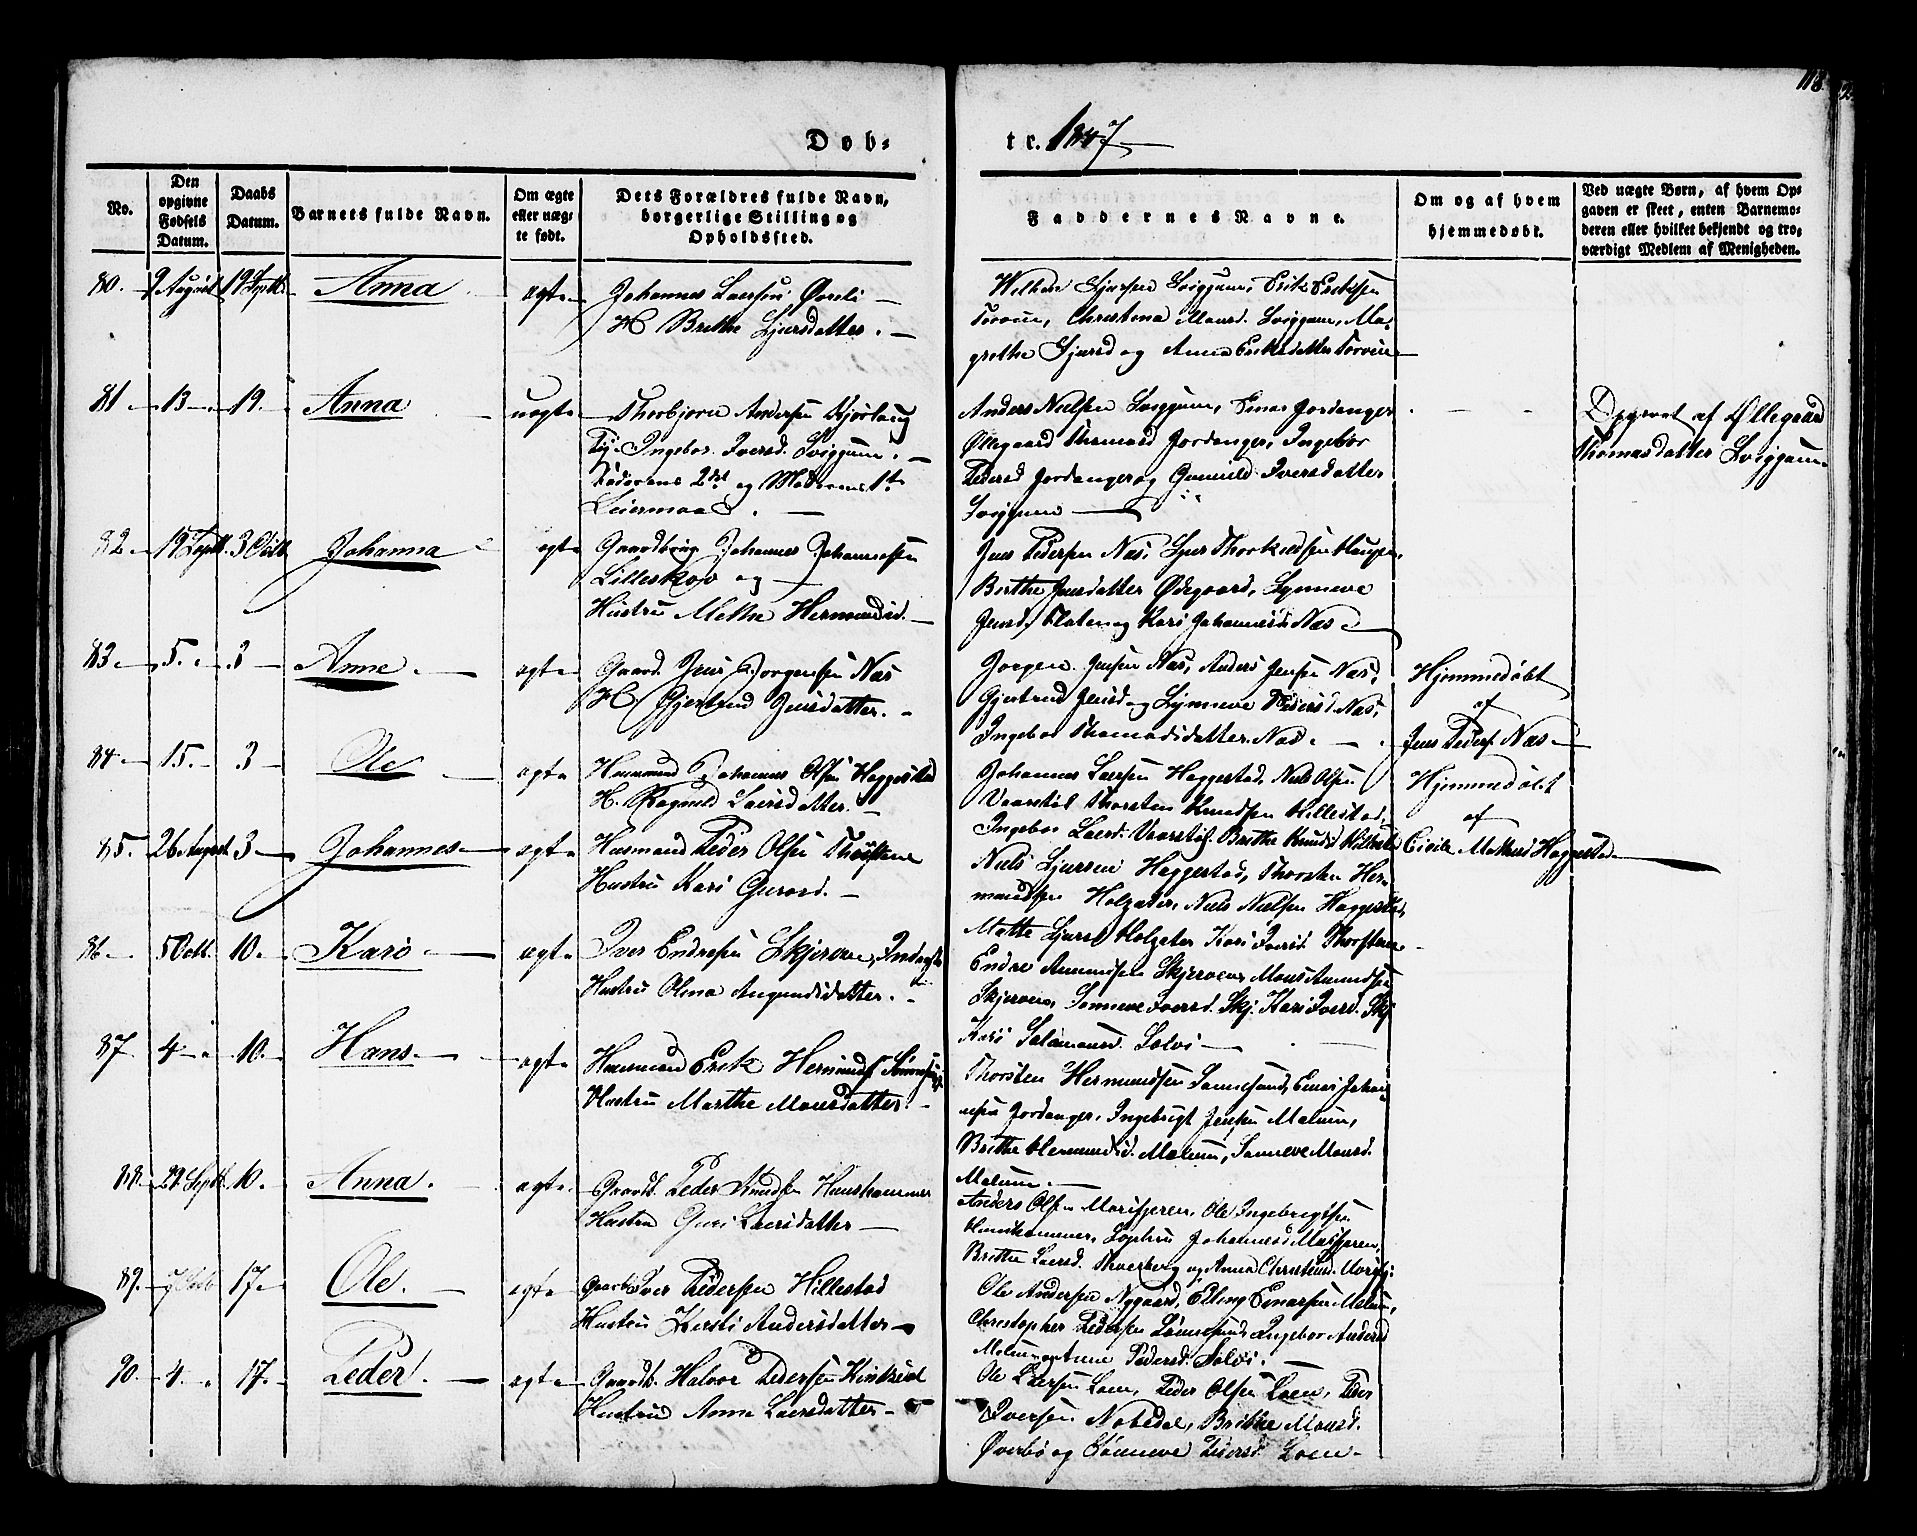 118
Døb-
te. 1847
No.
Den opgivne Fødsels Datum.
Daabs Datum.
Barnets fulde Navn.
Om ægte eller uægte født.
Dets Forældres fulde Navn, borgerlige Stilling og Opholdssted.
Faddernes Navne.
Om og af hvem hjemmedøbt.
Ved uægte Børn, af hvem Opgaven er skeet, enten Barnemoderen eller hvilket bekjendt og troværdigt Medlem af Menigheden.
80. 9 August 19 Septb. Anna ægte
Johannes Larsen
H. Brithe Sjursdatter.
Sjursen Sviggum, Erik Eriksen
Christina Monsd. Sviggum, Ma-
grethe Sjursd og Anna Eriksdatter
81 13 19. Anna uægte
Thorbjørn Andersen
Ingebor Iversd. Sviggum.
Faderens 2det og Moderens 1te
Leiermaal.
Anders Nielsen Sviggum, Einar Jordanger
Øllegaard Thomasd Jordanger, Ingebor
Pedersd Jordanger og Gunnild Iversdatter
Sviggum
Opgivet af Øllegaard
Thomasdatter Sviggum
82 19 Septb. 3 Octb. Johanna ægte
Gaardbrug. Johannes Johannesen
Lilleskov og
Hustru Methe Hermundsd.
Jens Pedersen Næs, Sjur Thorkelsen Haugen,
Birthe Jensdatter Ødegaard, Synneve
Jensd. Flaten og Kari Johannesd Næs
83 5. 3 Anne ægte
Gaard. Jens Jørgensen Næs
H. Gjertrud Jensdatter.
Jørgen Jensen Næs, Anders Jensen Næs,
Gjertrud Jensd og Synneve Pedersd Næs,
Ingebor Thomasdatter Næs.
Hjemmedøbt
af
Jens Peders. Næs
84 15. 3 Ole ægte
Husmand Johannes Olsen Haggestad
H. Ragnild Larsdatter.
Johannes Larsen Haggestad, Niels Olsen
Thorsten Knudsen Hillestad,
Ingebor Larsd. Brithe Knudsd Hillestad
Hjemmedøbt
af
Cicile Haggestad
85. 26 August 3 Johannes ægte
Husmand Peder Olsen
Hustru Kari
Niels Sjursen Haggestad, Thorsten Her-
mundsen Holzater, Niels Nielsen Haggestad,
Mette Sjursd Holzater Kari Iversd
86 5 Octb. 10. Kari ægte
Iver Endresen Skjerven, Inderste
Hustru
Endre Amundsen Skjerven, Mons Amundsen
Skjerven, Sønneve Iversd. Skj. Kari Iversd. Skj
Kari Salamonsd. Solvi
87. 4 10. Hans ægte
Husmand Erik Hermunds.
Hustru Marthe Monsdatter.
Thorsten Hermundsen Einar Johan-
nesen Jordanger, Ingebrigt Jensen Molum,
Brithe Hermundsd. Molum, Sønneve Monsd.
Molum.
88. Septb. 10. Anna ægte
Gaardb. Peder Knudsen Hunshammer
Hustru Guri Larsdatter
Anders Olsen Marifjæren, Ole Ingebrigtsen
Hunshammer, Johannesd Marifjæren,
Brithe Larsd. og Anna Christensd. Marifj.
89. 7 Octb 17 Ole. ægte
Gaardb Iver Pedersen Hillestad
Hustru Kirsti Andersdatter
Ole Andersen Nygaard, Elling Einarsen Molum,
Christopher Pedersen Ingebor Andersd
Molum og Anne Pedersd. Solvi.
90. 4. 17. Peder ægte
Gaardb. Halvor Pedersen
Hustru Anne Larsdatter
Ole Larsen Loen, Peder Olsen Loen, Peder
Iversen Brithe Monsd.
Øverbø og Sønneve Pedersd. Loen